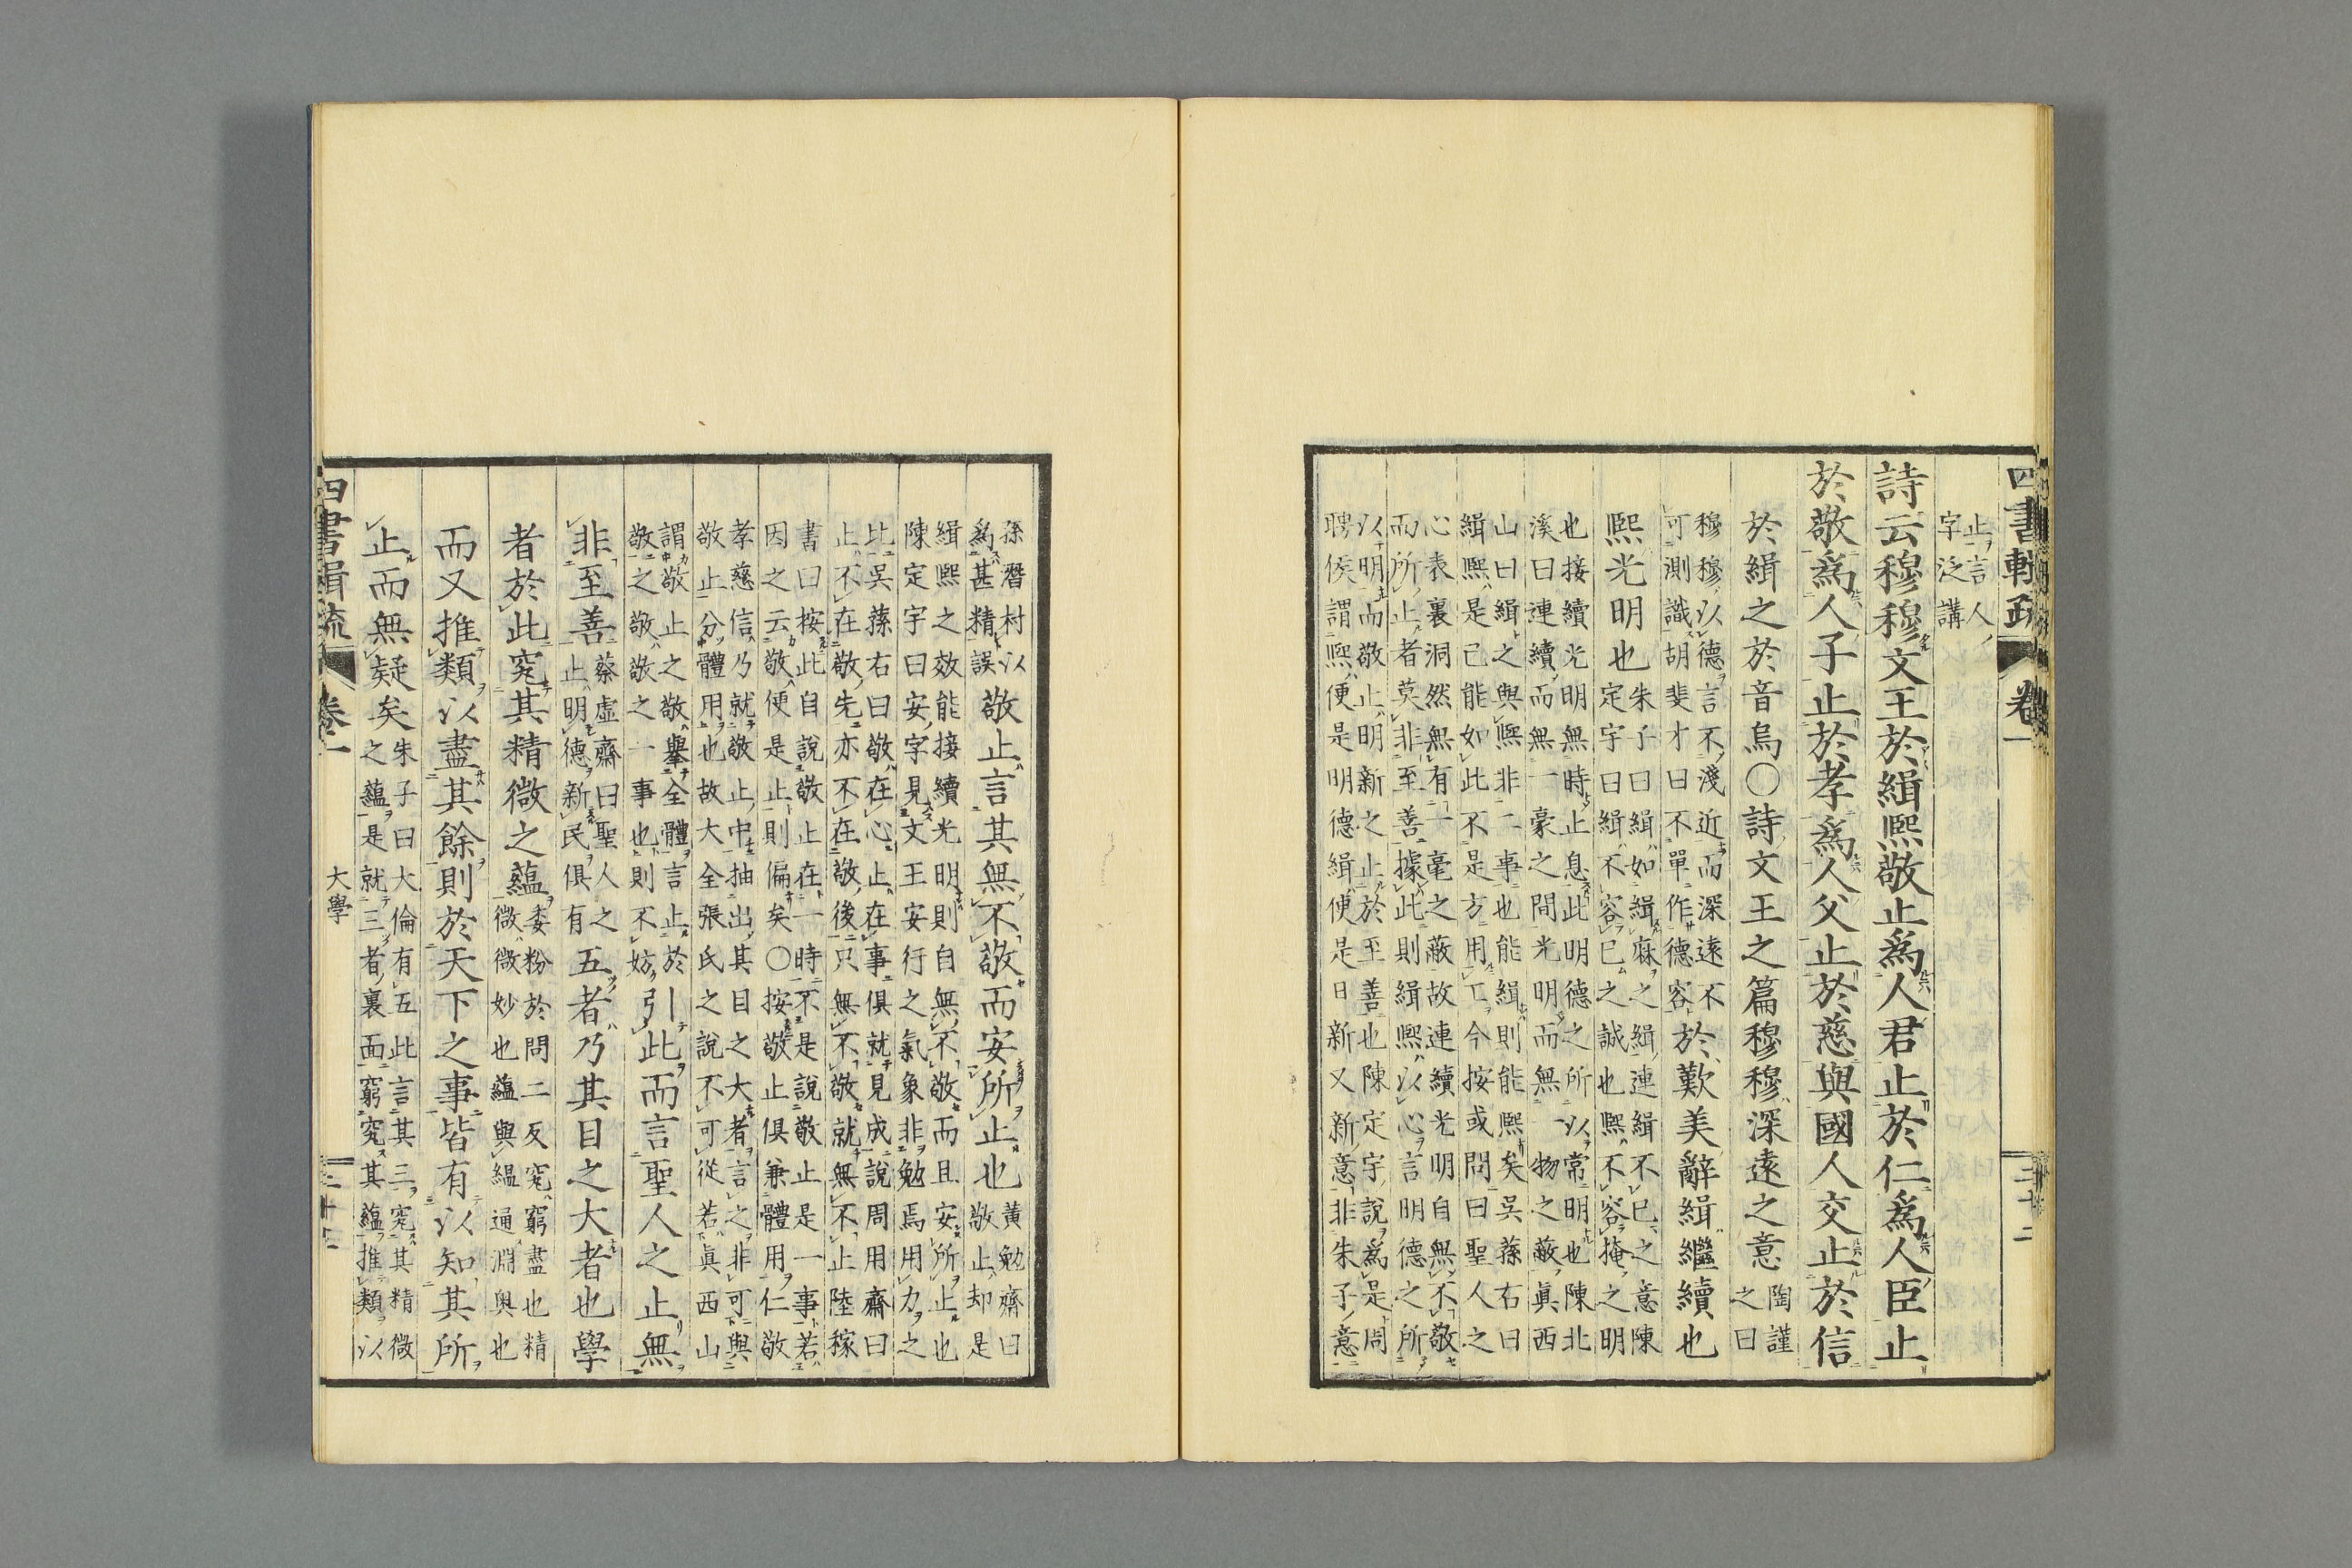 四書輯疏 卷一 大學 三十二
止言人
字泛講
詩云穆穆文王於緝熙敬止爲人君止於仁爲人臣止
於敬爲人子止於孝爲人父止於慈與國人交止於信
於緝之於音烏〇詩文王之篇穆穆深遠之意
陶謹
之曰
穆穆以德言不淺近而深遠不
可測識胡斐才曰不單作德容
於歎美辭緝繼續也
熙光明也
朱子曰緝如緝麻之緝連緝不已之意陳
定宇曰緝不容已之誠也熙不容掩之明
也接續光明無時止息此明德之所以常明也陳北
溪曰連續而無一豪之間光明而無一物之蔽眞西
山曰緝之與熙非二事也能緝則能熙矣吳蓀右曰
緝熙是已能如此不是方用工今按或問曰聖人之
心表裏洞然無有一毫之蔽故連續光明自無不敬
而所止者莫非至善據此則緝熙以心言明德之所
以明而敬止明新之止於至善也陳定宇說爲是周
聘侯謂熙便是明德緝便是日新又新意非朱子意
孫潛村以
爲甚精誤
敬止言其無不敬而安所止也
黃勉齋曰
敬止却是
緝熙之效能接續光明則自無不敬而且安所止也
陳定宇曰安字見文王安行之氣象非勉焉用力之
比吳蓀右曰敬在心止在事俱就見成說周用齋曰
止不在敬先亦不在敬後只無不敬就無不止陸稼
書曰按此自說敬止在一時不是說敬止是一事若
因之云敬便是止則偏矣〇按敬止俱兼體用仁敬
孝慈信乃就敬止中抽出其目之大者言之非可與
敬止分體用也故大全張氏之說不可從若眞西山
謂敬止之敬舉全體言止於
敬之敬敬之一事也則不妨
引此而言聖人之止無
非至善
蔡虛齋曰聖人之
止明德新民俱有
五者乃其目之大者也學
者於此究其精微之蘊
委粉於問二反究窮盡也精
微微妙也蘊與縕通淵奧也
而又推類以盡其餘則於天下之事皆有以知其所
止而無疑矣
朱子曰大倫有五此言其三究其精微
之蘊是就三者裏面窮究其蘊推類以
四書輯疏 卷一 大學